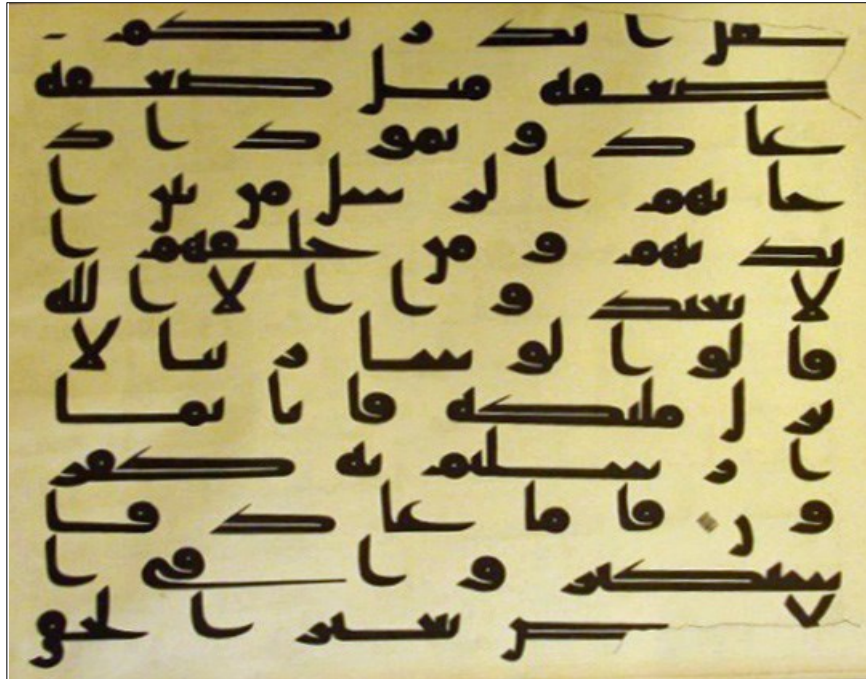 فقل انذرتكم
صعقة مثل صعقة
عاد وثمود اذ
جاتهم الرسل من بين ا
يديهم ومن خلفهم ا
لا تعبدوا الا الله
قالوا لو شا ربنا لا
نزل ملئكة فانا بما
ارسلتم به كفر
ون فاما عاد فا
ستكبروا في ا
لارض بغير الحق